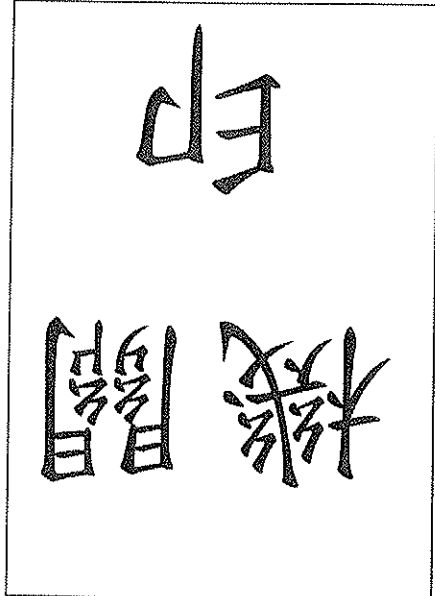 機關
印